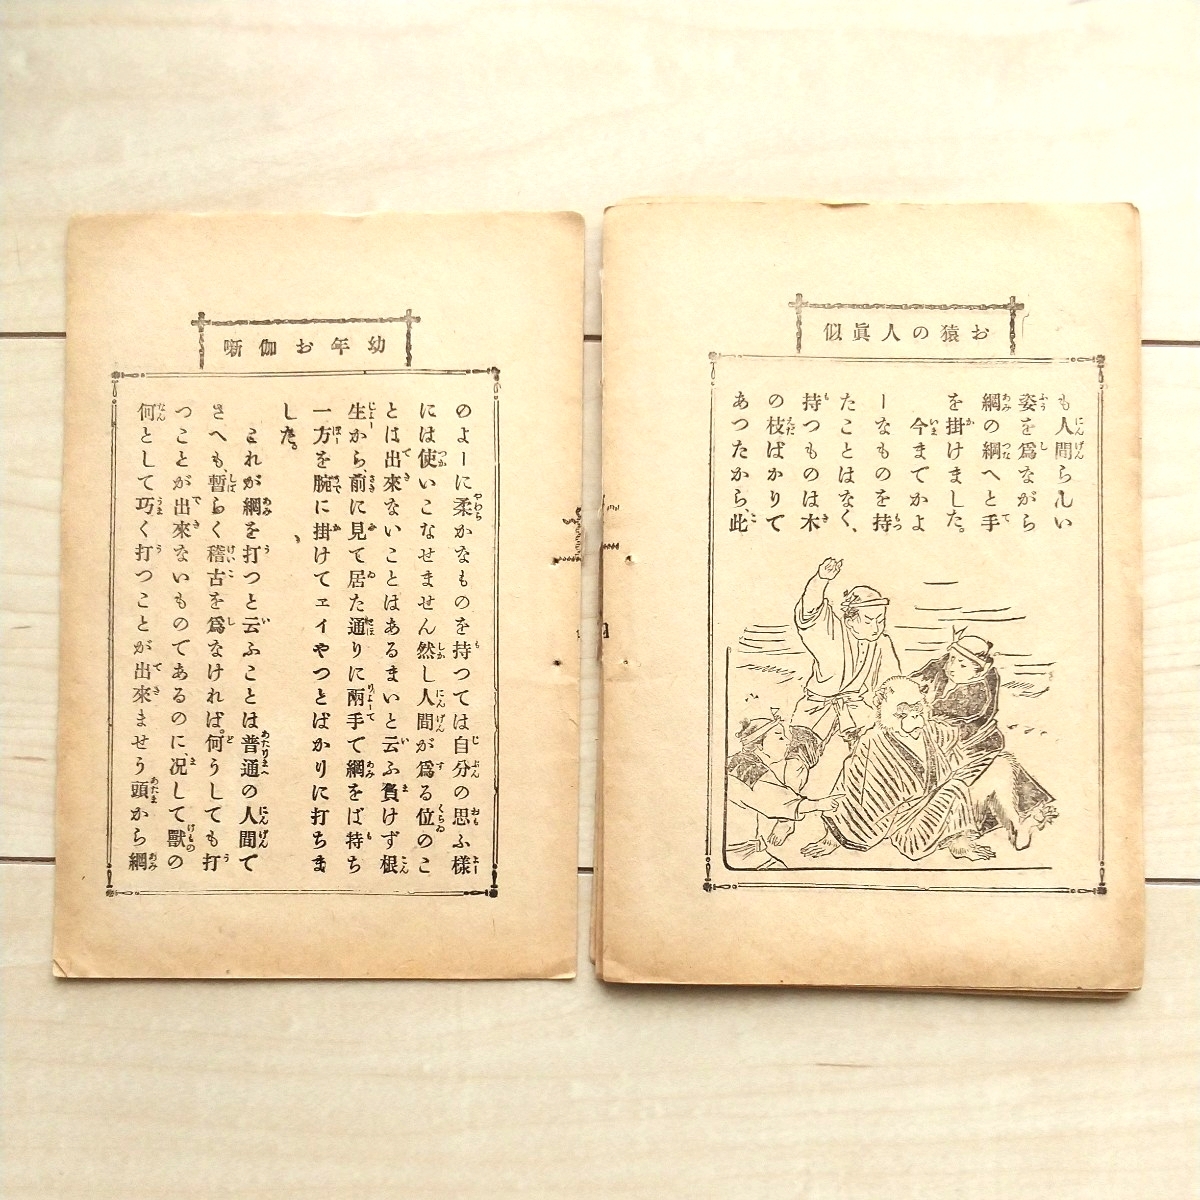 お猿の人眞似
も人間らしい
姿を爲ながら
網の綱へと手
を掛けました。
今までかよ
ーなものを持
たことはなく、
持つものは木
の枝ばかりで
あつたから、此
幼年お伽噺
のよーに柔かなものを持つては自分の思ふ様
には使いこなせません然し人間が爲る位のこ
とは出來ないことはあるまいと云ふ負けず根
生から、前に見て居た通りに兩手で網をば持ち
一方を腕に掛けてエイやつとばかりに打ちま
した。
これが網を打つと云ふことは普通の人間で
さへも、暫らく稽古を爲なければ。何うしても打
つことが出來ないものであるのに、况して獸の
何として巧く打つことが出來ませう頭から網